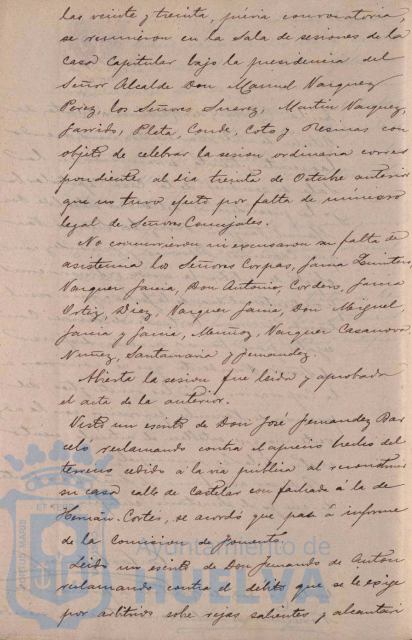 las veinte y treinta, prévia convocatoria,
se reunieron en la Sala de sesiones de la
Casa Capitular bajo la presidencia del
Señor Alcalde Don Manuel Vazquez
Perez, los Señores Suarez, Martin Vazquez,
Garrido, Plata, Conde, Coto y Resinas con
objeto de celebrar la sesion ordinaria corres
pondiente al dia treinta de Octubre anterior
que no tuvo efecto por falta de número
legal de Señores Concejales.
No concurrieron ni excusaron su falta de
asistencia los Señores Corpas, Garcia Quintero,
Vazquez Garcia, Don Antonio, Cordero, Garcia
Ortiz, Diaz, Vazquez Garcia, Don Miguel,
Garcia y Garcia, Muñoz, Vazquez Casanova,
Nuñez, Santamaria y Fernandez.
Abierta la sesion fue leida y aprobada
el acta de la anterior.
Visto un escrito de Don José Fernandez Bar
celó reclamando contra el aprecio hecho del
terreno cedido á la via pública al reconstruir
su casa calle de Castelar con fachada á la de
Hernán Cortés, se acordó que pase á informe
de la comision de fomento.
Leido un escrito de Don Fernando de Anton
reclamando contra el débito que se le exige
por arbitrios sobre rejas salientes y alcantari
Ayuntamiento de
HUELVA